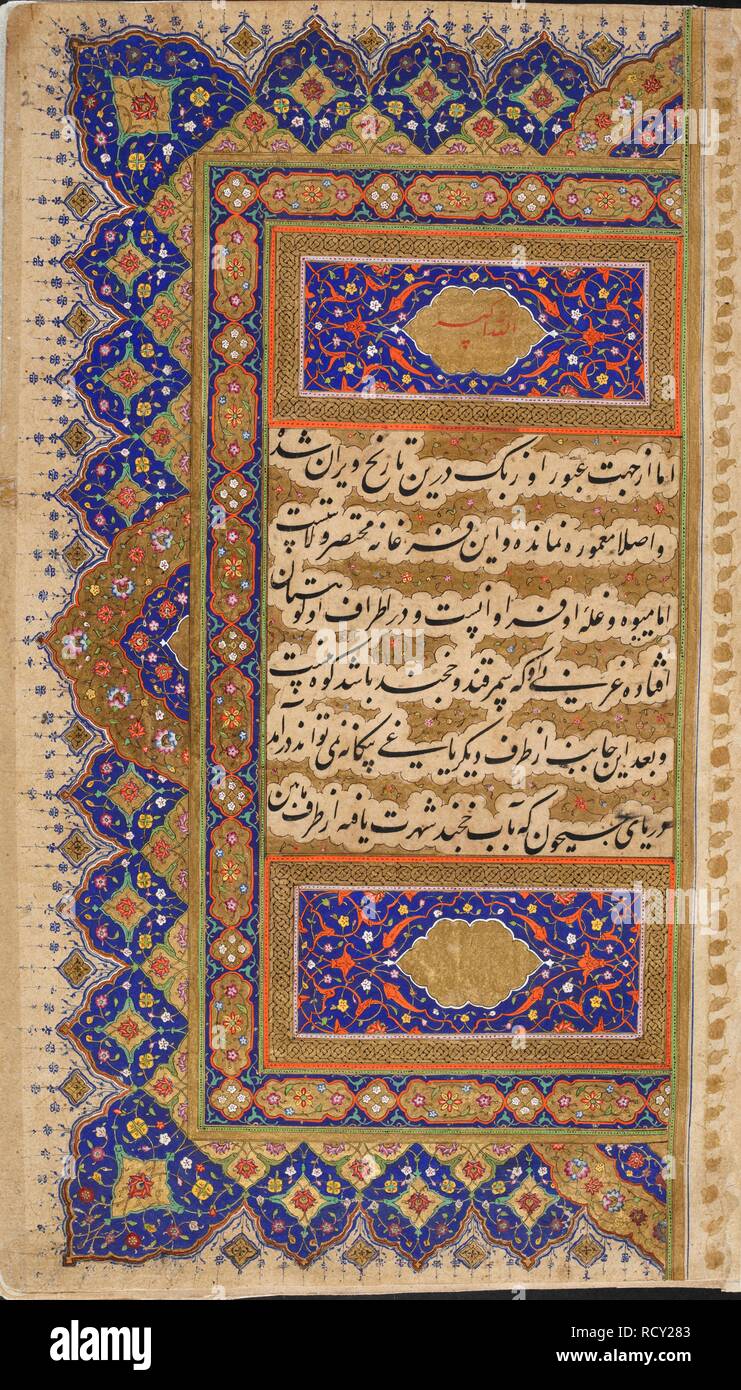 الله اکبر
اما از جهت عبور اوزبک درین تاریخ ویران شده
و اصلا معموره نمانده و این فرغانه مختصر ولایتیست
اما میوه و غله او فراوانست و در اطراف او کوهستان
افتاده غربی او که سمرقند و خجند باشد کوه نیست
و بعد این جانب از طرف دیگر یاغی بیگانه نمی تواند در آمد
دریای سیحون که بآب خجند شهرت یافته از طرف مابین
alamy
alamy
Image ID: RCY283
www.alamy.com